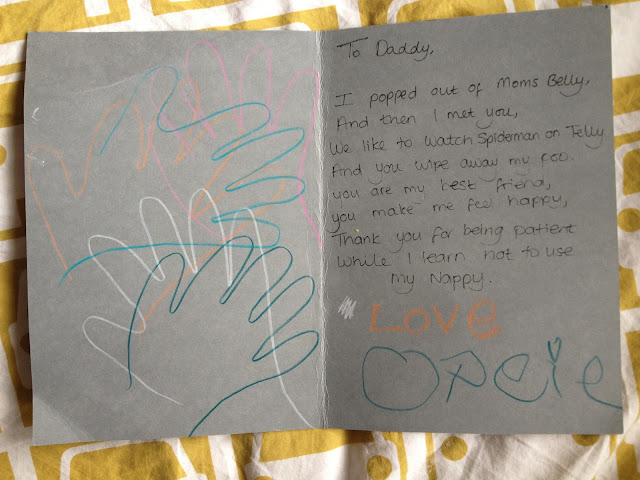 To Daddy,
I popped out of Moms Belly,
And then I met you,
We like to watch Spiderman on Telly
And you wipe away my poo.
you are my best friend,
you make me feel happy,
Thank you for being patient
while I learn not to use
my Nappy.
LOVE